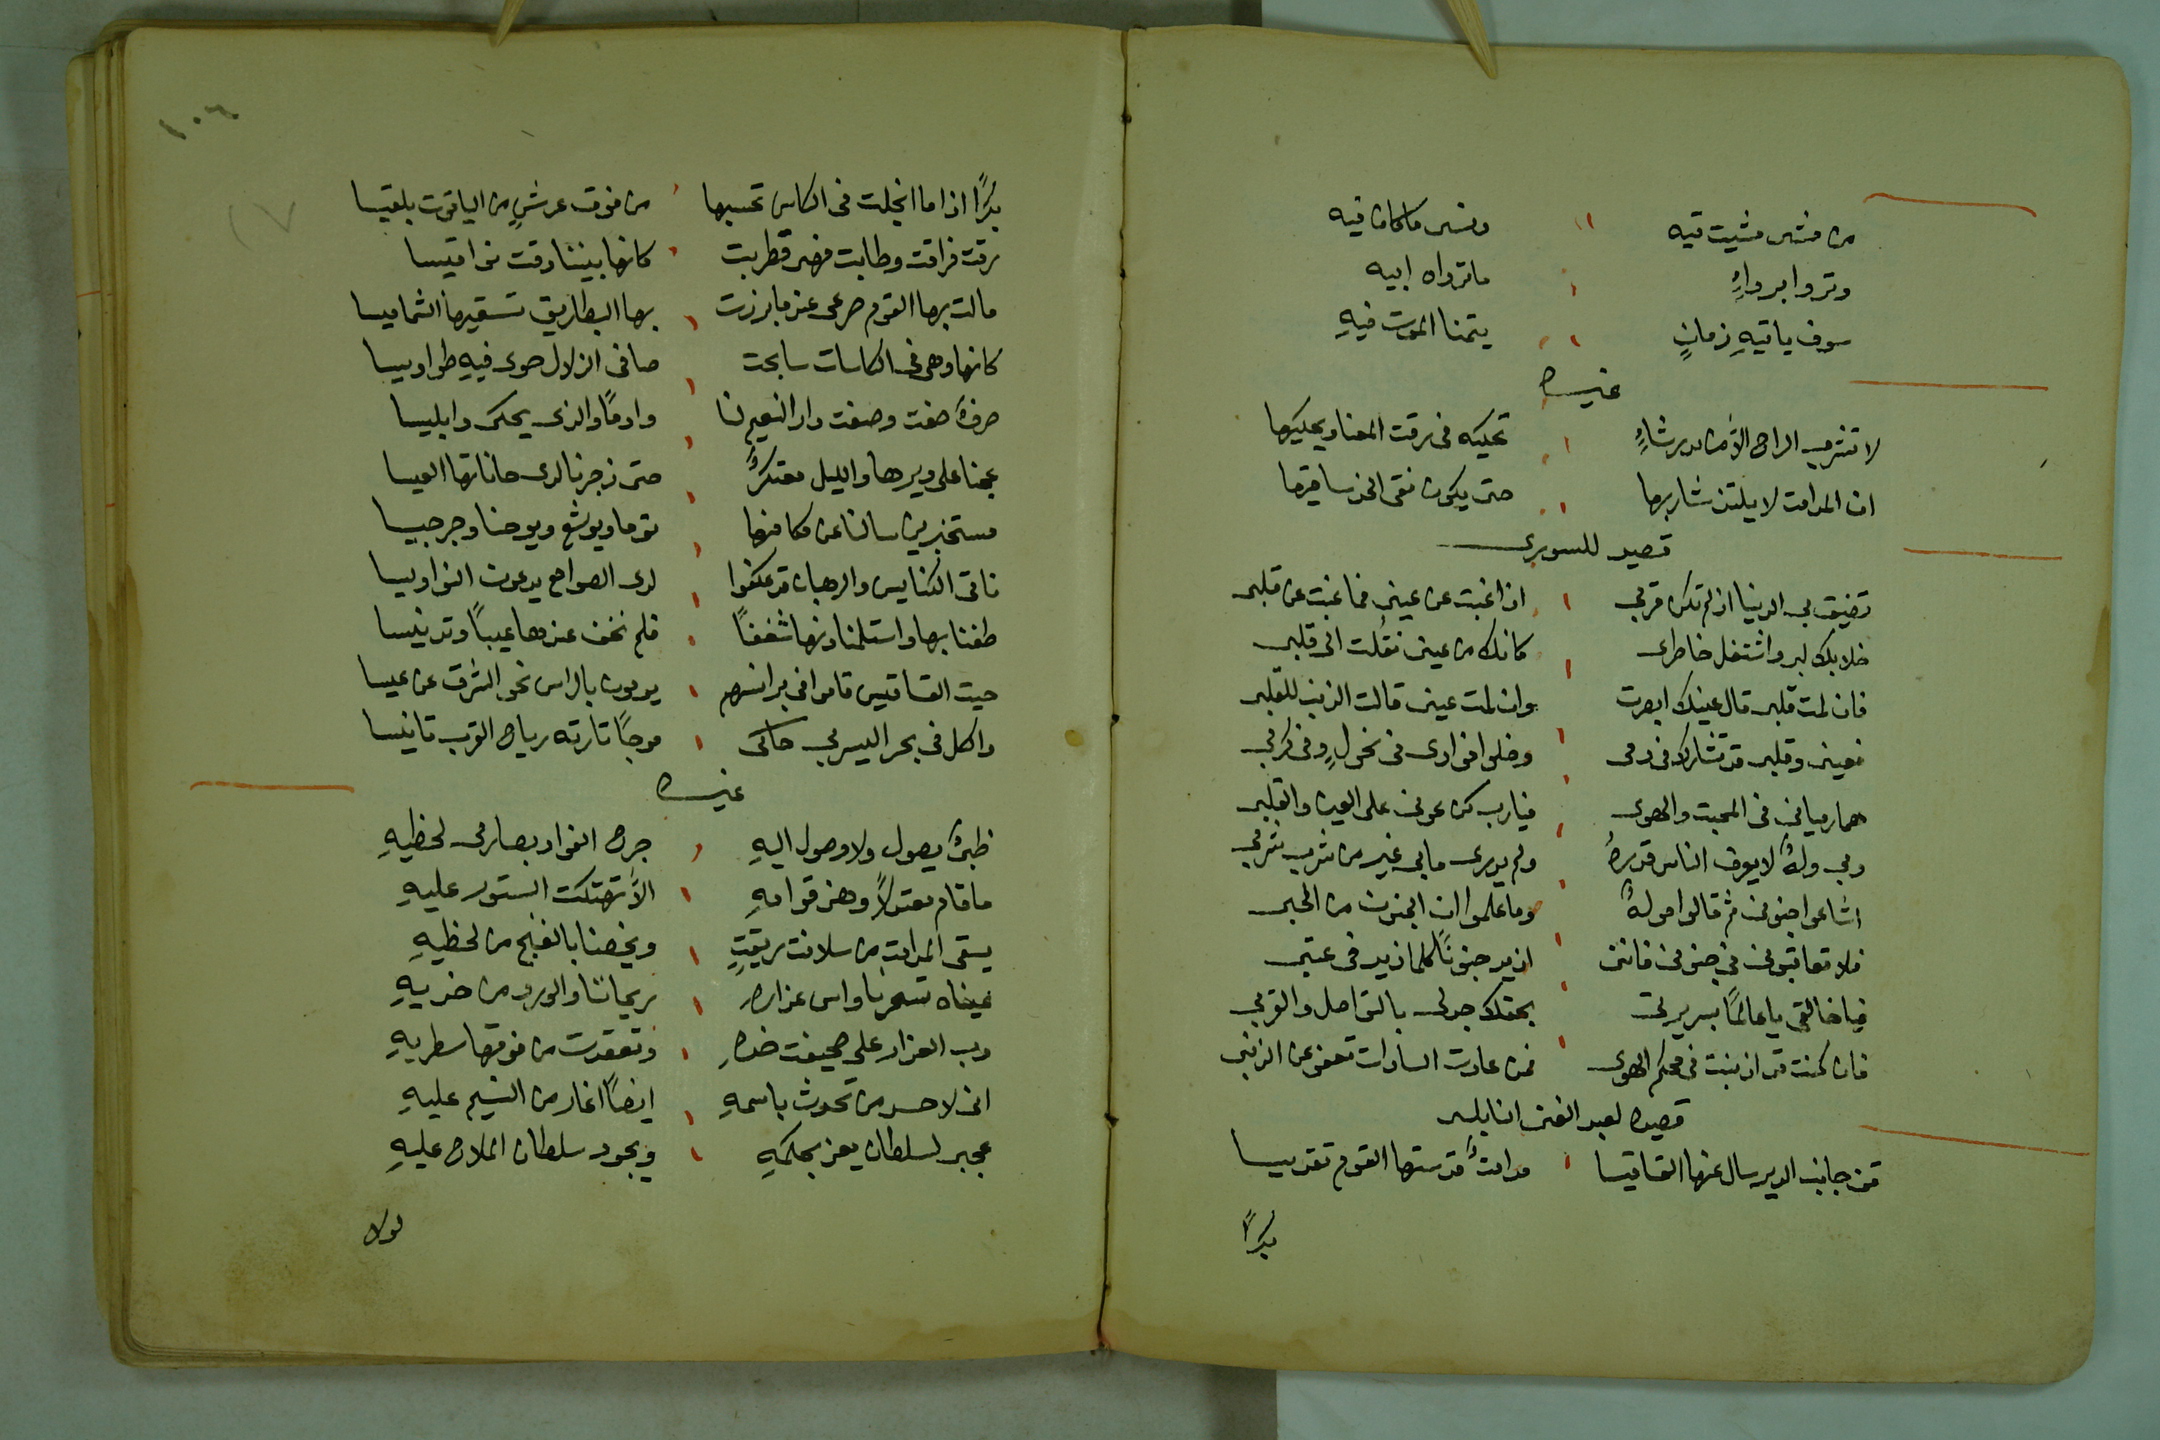 من مشى مشيت فيه ونسى ما كان فيه
وتروا برواءٍ ماتزواه ابيه
سوف ياتيهِ زمانٍ يتمنا الموت فيهِ
غيره
لا تشرب الراح الاّ من يد رشاءٍ تحكيه فى رقت المعنا ويحكيها
ان المدامت لا يلتذ شاربها حتى يكون نقى الخد ساقيها
قصيد للسويدى
تضيق بى الدنيا اذ لم تكن قربي اذا غبت عن عينى فما غبت عن قلبى
خلا بك لبى واشتغل خاطرى كانك من عينى نقلت الى قلبى
فان لمت قلبى قال عينك ابصرت وان لمت عينى قالت الذنب للقلبى
فعينى وقلبى قد تشارك فى دمى وخلوا فوادى فى نحولٍ وفى كربي
هما رميانى فى المحبت والهوى فيارب كن عونى على العين والقلبى
وبي ولهٌ لا يعرف الناس قدرهُ ولم يدرى ما بي غير من شرب شربي
اشاعوا جنونى ثم قالوا مولهٌ وما علموا ان الجنون من الحبى
فلا تعاتبونى فى جنونى فاننى ازيد جنونًا كلما زيد فى عتبى
فيا خالقى يا عالمًا بسريرتى بحقك جد لى بالتواصل والقربي
فان كنت قد اذنبت فى حكم الهوى فمن عادت السادات تعفو عن الذنبى
قصيده لعبد الغنى النابلسى
قف جانب الدير سال عنها القساقيسا مدامتٌ قدستها القوم تقديسا
بكرًا
١٠٦
١٧
بكرًا اذا ما انجلت فى الكاس تحسبها من فوق عرشٍ من الياقوت بلقيسا
رقت فراقت وطابت فهى قطربت كانها بيننا دقت نواقيسا
مالت بها القوم صرعى عندما برزت بها البطاريق تسقيها الشماميسا
كانها وهى فى الكاسات سابحت صافى الزلال حوى فيهِ طواويسا
صرفاً صفت وصفت دار النعيم لنا وادمًا والذى يحكى وابليسا
عجنا على ديرها والليل معتكرٌ حتى زجرنا لدى حاناتها العيسا
مستخبرين سالنا عن مكامنها توما ويوشع ويوحنا وجرجيسا
ناتى الكنايس والرهبان قد عكفوا لدى الصوامع يدعون النواويسا
طفنا بها واستلمنا دنها شغفاً فلم نخف عندها عيباً وتدنيسا
حيت القساقيس قاموا فى برانسهم يومون بالراس نحو الشرق عن عيسا
واكل فى بحر اليسرى حاكى موجاً تارته رياح القرب تانيسا
غيره
ظبىٌ يصول ولا وصول اليهِ جرح الفواد بصارمى لحظيهِ
ما قام معتدلاً وهز قوامهِ الاّ تهتكت الستور عليهِ
يسقى المدامت من سلافت ريقتٍ ويخصنا بالغنج من لحظيهِ
عيناه تسحرنا واس عذارهِ ريحاننا والورد من خديهِ
دب العذار على صحيفت خدهِ وتعقدت من فوقها سطريهِ
انى لاحسد من تحدث باسمهِ ايضًا اغار من النسيم عليهِ
عجبى لسلطان يعز بحكمهِ ويجود سلطان الملاح عليهِ
لولا